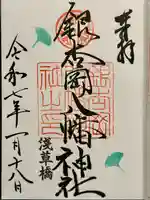 奉拝
銀杏岡八幡神社
浅草橋
令和七年一月十八日